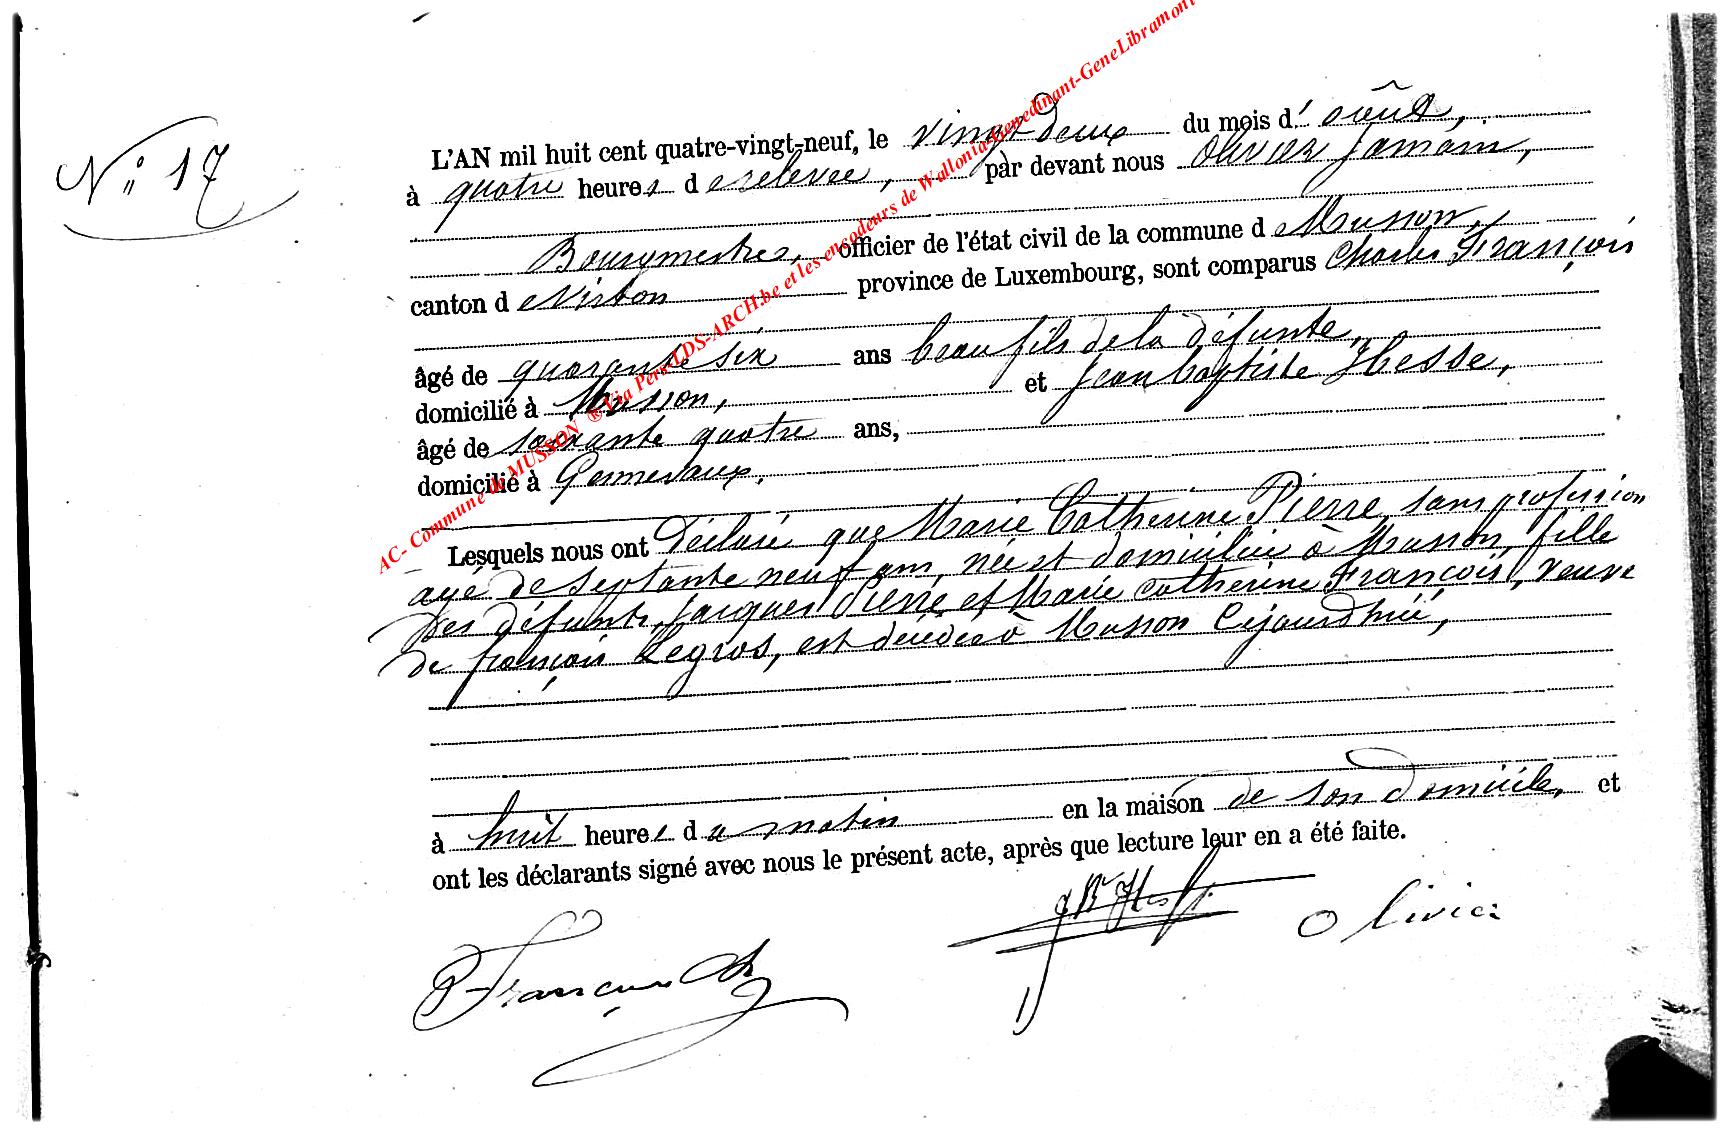 N° 17
L'AN mil huit cent quatre-vingt-neuf, le vingt deux du mois d'août,
à quatre heures de relevée, par devant nous Olivier Jamain,
Bourgmestre, officier de l'état civil de la commune de Musson,
canton de Virton province de Luxembourg, sont comparus Charles François
âgé de quarante six ans beau fils de la défunte,
domicilié à Musson, et Jean baptiste Hesse,
âgé de soixante quatre ans,
domicilié à Gennevaux,
Lesquels nous ont déclaré que Marie Catherine Pierre, sans profession
agé de septante neuf ans, née et domiciliée à Musson, fille
des défunts, Jacques Pierre et Marie Catherine François, veuve
de françois Legros, est décédée à Musson Cejourd'hui,
à huit heures du matin en la maison de son domicile, et
ont les déclarants signé avec nous le présent acte, après que lecture leur en a été faite.
François Ch
JBte Hesse
Olivier
AC- Commune de MUSSON ® Via Pers LDS-ARCH.be et les encodeurs de Wallonia-Genedinant-GeneLibramont